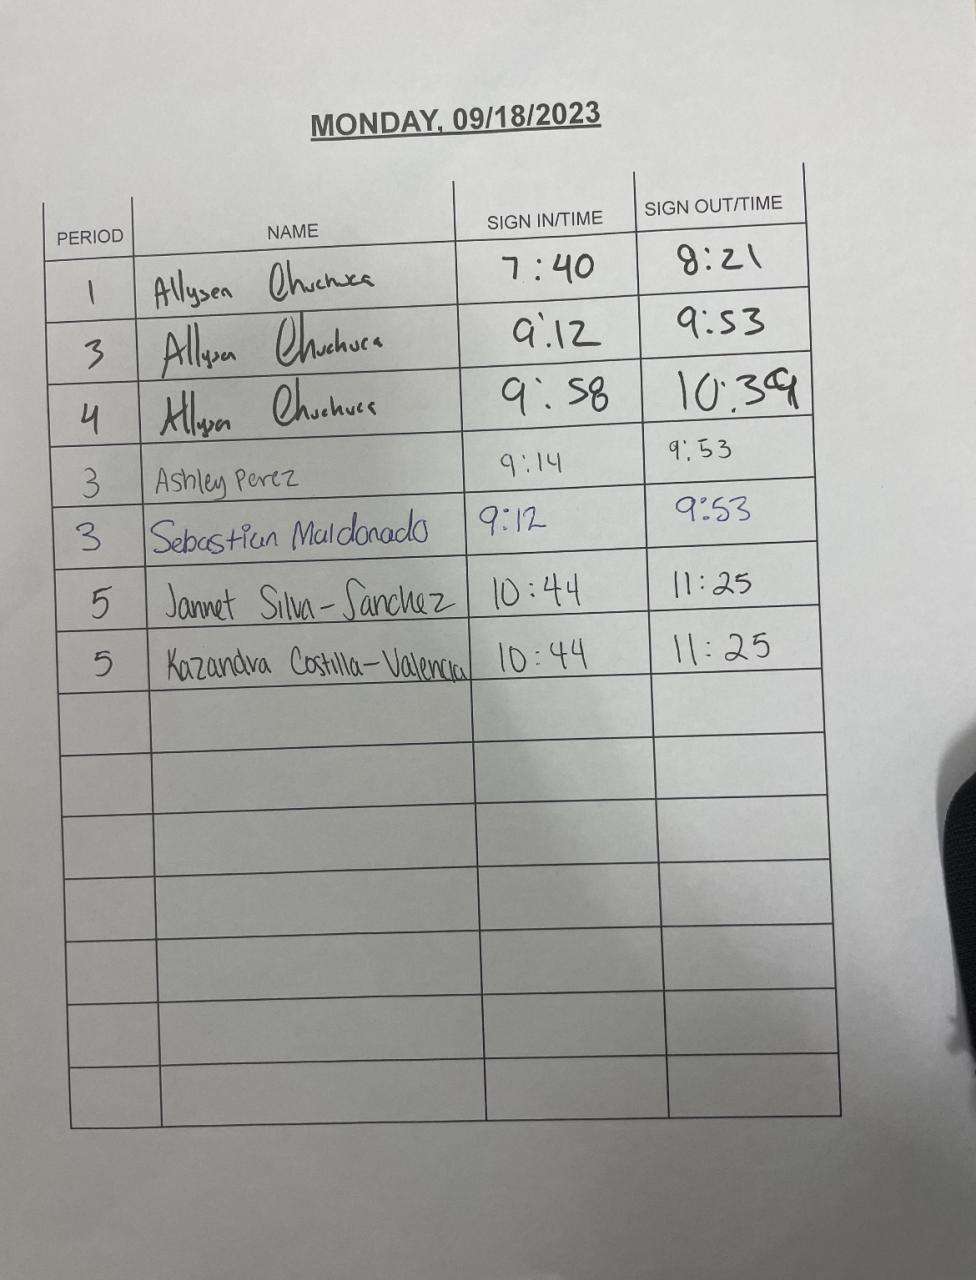 MONDAY, 09/18/2023
PERIOD NAME SIGN IN/TIME SIGN OUT/TIME
1 Allysen Chuchuca 7:40 8:21
3 Allysen Chuchuca 9:12 9:53
4 Allysen Chuchuca 9:58 10:39
3 Ashley Perez 9:14 9:53
3 Sebastian Maldonado 9:12 9:53
5 Jannet Silva-Sanchez 10:44 11:25
5 Kazandra Costilla-Valencia 10:44 11:25